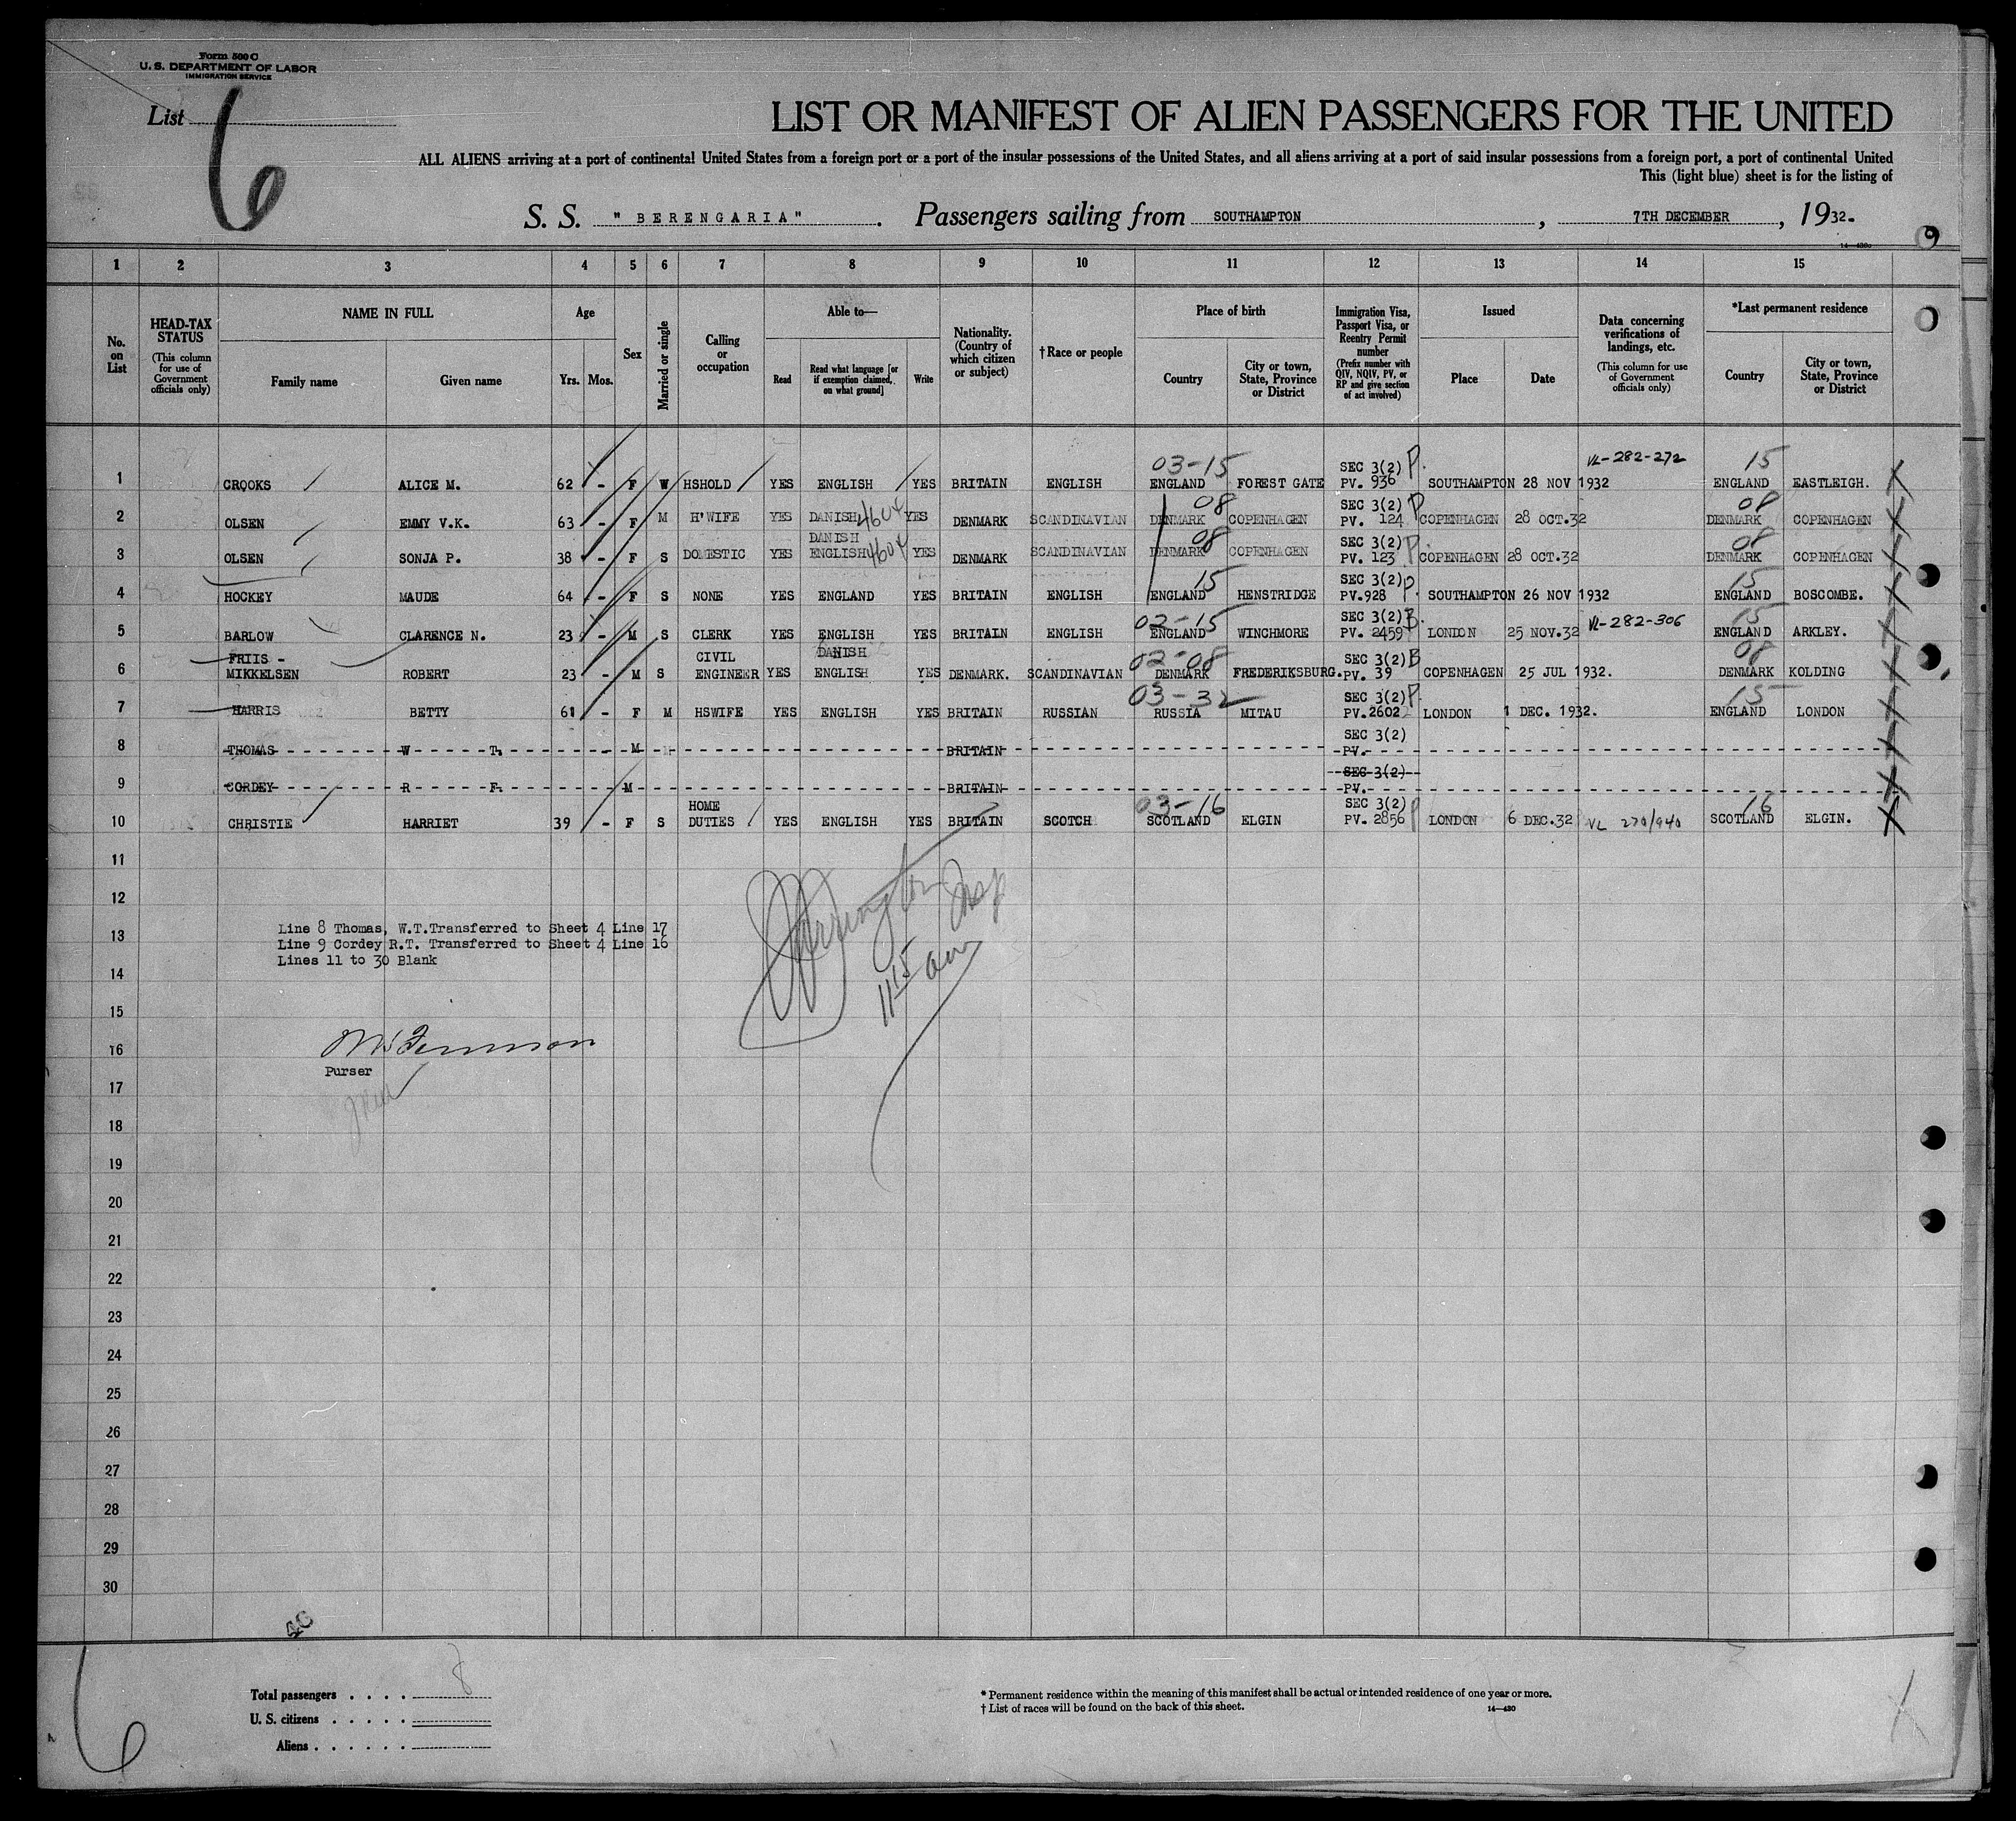 Form 500 C
U. S. DEPARTMENT OF LABOR
IMMIGRATION SERVICE
List 6
LIST OR MANIFEST OF ALIEN PASSENGERS FOR THE UNITED
ALL ALIENS arriving at a port of continental United States from a foreign port or a port of the insular possessions of the United States, and all aliens arriving at a port of said insular possessions from a foreign port, a port of continental United
This (light blue) sheet is for the listing of
S. S. "BERENGARIA". Passengers sailing from SOUTHAMPTON, 7TH DECEMBER, 1932-
14—430
1 2 3 4 5 6 7 8 9 10 11 12 13 14 15
No. on List
HEAD-TAX STATUS (This column for use of Government officials only)
NAME IN FULL
Family name
Given name
Age
Yrs. Mos.
Sex
Married or single
Calling or occupation
Able to—
Read
Read what language [or if exemption claimed, on what ground]
Write
Nationality. (Country of which citizen or subject)
† Race or people
Place of birth
Country
City or town, State, Province or District
Immigration Visa, Passport Visa, or Reentry Permit number (Prefix number with QIV, NQIV, PV, or RP and give section of act involved)
Issued
Place
Date
Data concerning verifications of landings, etc. (This column for use of Government officials only)
*Last permanent residence
Country
City or town, State, Province or District
03-15 SEC 3(2) P. VL-282-272 15
1 CROOKS ALICE M. 62 - F W HSHOLD YES ENGLISH YES BRITAIN ENGLISH ENGLAND FOREST GATE PV. 936 SOUTHAMPTON 28 NOV 1932 ENGLAND EASTLEIGH.
08 SEC 3(2) P 08
2 OLSEN EMMY V.K. 63 - F M H'WIFE YES DANISH 4604 YES DENMARK SCANDINAVIAN DENMARK COPENHAGEN PV. 124 COPENHAGEN 28 OCT.32 DENMARK COPENHAGEN
DANISH 08 SEC 3(2) P. 08
3 OLSEN SONJA P. 38 - F S DOMESTIC YES ENGLISH 4604 YES DENMARK SCANDINAVIAN DENMARK COPENHAGEN PV. 123 COPENHAGEN 28 OCT.32 DENMARK COPENHAGEN
15 SEC 3(2) P. 15
4 HOCKEY MAUDE 64 - F S NONE YES ENGLAND YES BRITAIN ENGLISH ENGLAND HENSTRIDGE PV.928 SOUTHAMPTON 26 NOV 1932 ENGLAND BOSCOMBE.
02-15 SEC 3(2) B. VL-282-306 15
5 BARLOW CLARENCE N. 23 - M S CLERK YES ENGLISH YES BRITAIN ENGLISH ENGLAND WINCHMORE PV. 2459 LONDON 25 NOV.32 ENGLAND ARKLEY.
FRIIS - CIVIL DANISH 02-08 SEC 3(2) B 08
6 MIKKELSEN ROBERT 23 - M S ENGINEER YES ENGLISH YES DENMARK. SCANDINAVIAN DENMARK FREDERIKSBURG. PV. 39 COPENHAGEN 25 JUL 1932. DENMARK KOLDING
03-32 SEC 3(2) P. 15
7 HARRIS BETTY 61 - F M HSWIFE YES ENGLISH YES BRITAIN RUSSIAN RUSSIA MITAU PV.2602 LONDON 1 DEC. 1932. ENGLAND LONDON
SEC 3(2)
8 THOMAS W T. M BRITAIN PV.
SEC 3(2)
9 CORDEY R F. M BRITAIN PV.
HOME 03-16 SEC 3(2) P 16
10 CHRISTIE HARRIET 39 - F S DUTIES YES ENGLISH YES BRITAIN SCOTCH SCOTLAND ELGIN PV. 2856 LONDON 6 DEC.32 VL 270/940 SCOTLAND ELGIN.
11
12
Line 8 Thomas, W.T.Transferred to Sheet 4 Line 17
13
Line 9 Cordey R.T. Transferred to Sheet 4 Line 16
Lines 11 to 30 Blank
Insp
11 15 am
14
15
16
Purser
17
18
19
20
21
22
23
24
25
26
27
28
29
30
4C
6
Total passengers . . . . 8
U. S. citizens . . . . .
Aliens . . . . . .
* Permanent residence within the meaning of this manifest shall be actual or intended residence of one year or more.
† List of races will be found on the back of this sheet.
14—430